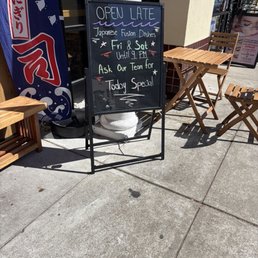 OPEN LATE
Japanese Fusion Dishes
Fri & Sat
Until 9 PM
Ask Our Team for
Today Special
にぎり
司